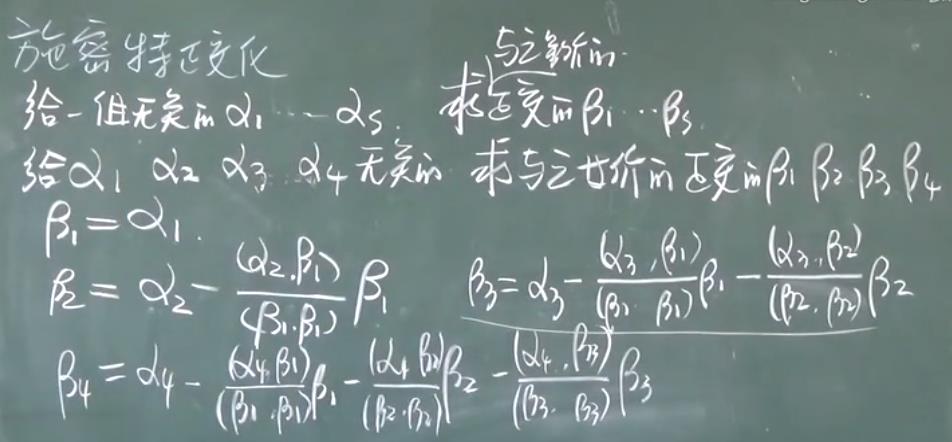 施密特正交化
与之等价的
给一组无关的 α₁ ⋯ αs. 求正交的β₁ ⋯ βs.
给α₁ α₂ α₃ α₄ 无关的 求与之等价的正交的β₁ β₂ β₃ β₄
β₁ = α₁.
β₂ = α₂ - (α₂,β₁)/(β₁,β₁) β₁ β₃ = α₃ - (α₃,β₁)/(β₁,β₁) β₁ - (α₃,β₂)/(β₂,β₂) β₂
β₄ = α₄ - (α₄,β₁)/(β₁,β₁) β₁ - (α₄,β₂)/(β₂,β₂) β₂ - (α₄,β₃)/(β₃,β₃) β₃